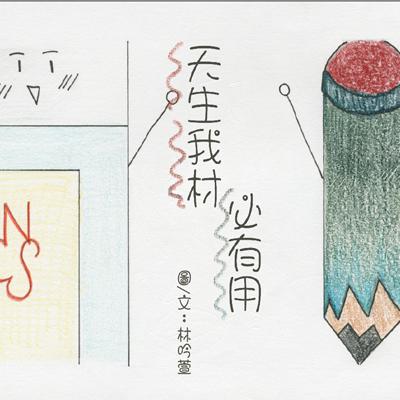 天生我材
必有用
圖/文：林吟萱
N
S